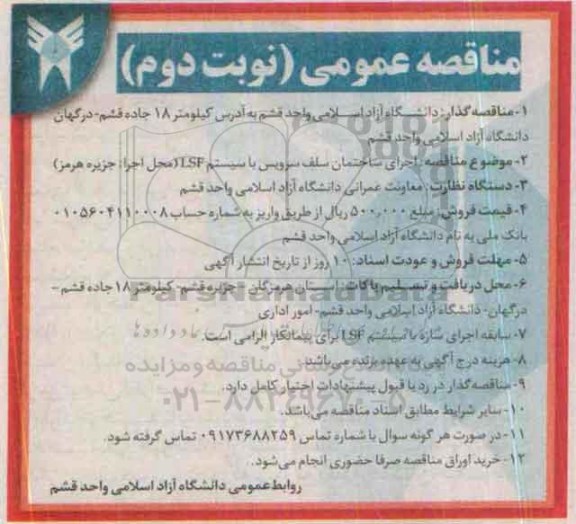 مناقصه عمومی (نوبت دوم)
۱- مناقصه گذار: دانشگاه آزاد اسلامی واحد قشم به آدرس کیلومتر ۱۸ جاده قشم- درگهان
دانشگاه آزاد اسلامی واحد قشم
۲- موضوع مناقصه: اجرای ساختمان سلف سرویس با سیستم LSF (محل اجرا: جزیره هرمز)
۳- دستگاه نظارت: معاونت عمرانی دانشگاه آزاد اسلامی واحد قشم
۴- قیمت فروش: مبلغ ۵۰۰,۰۰۰ ریال از طریق واریز به شماره حساب ۰۱۰۵۶۰۴۱۱۰۰۰۸
بانک ملی به نام دانشگاه آزاد اسلامی واحد قشم
۵- مهلت فروش و عودت اسناد: ۱۰ روز از تاریخ انتشار آگهی
۶- محل دریافت و تسلیم پاکات: استان هرمزگان - جزیره قشم- کیلومتر ۱۸ جاده قشم -
ParsNamadData
درگهان- دانشگاه آزاد اسلامی واحد قشم- امور اداری
۷- سابقه اجرای سازه با سیستم LSF برای پیمانکار الزامی است.
۸- هزینه درج آگهی به عهده برنده می‌باشد.
۹- مناقصه گذار در رد یا قبول پیشنهادات اختیار کامل دارد.
۰۲۱-۸۸۳۴۹۶۷۰-۵
۱۰- سایر شرایط مطابق اسناد مناقصه می‌باشد.
۱۱- در صورت هر گونه سوال با شماره تماس ۰۹۱۷۳۶۸۸۲۵۹ تماس گرفته شود.
۱۲- خرید اوراق مناقصه صرفا حضوری انجام می‌شود.
روابط عمومی دانشگاه آزاد اسلامی واحد قشم